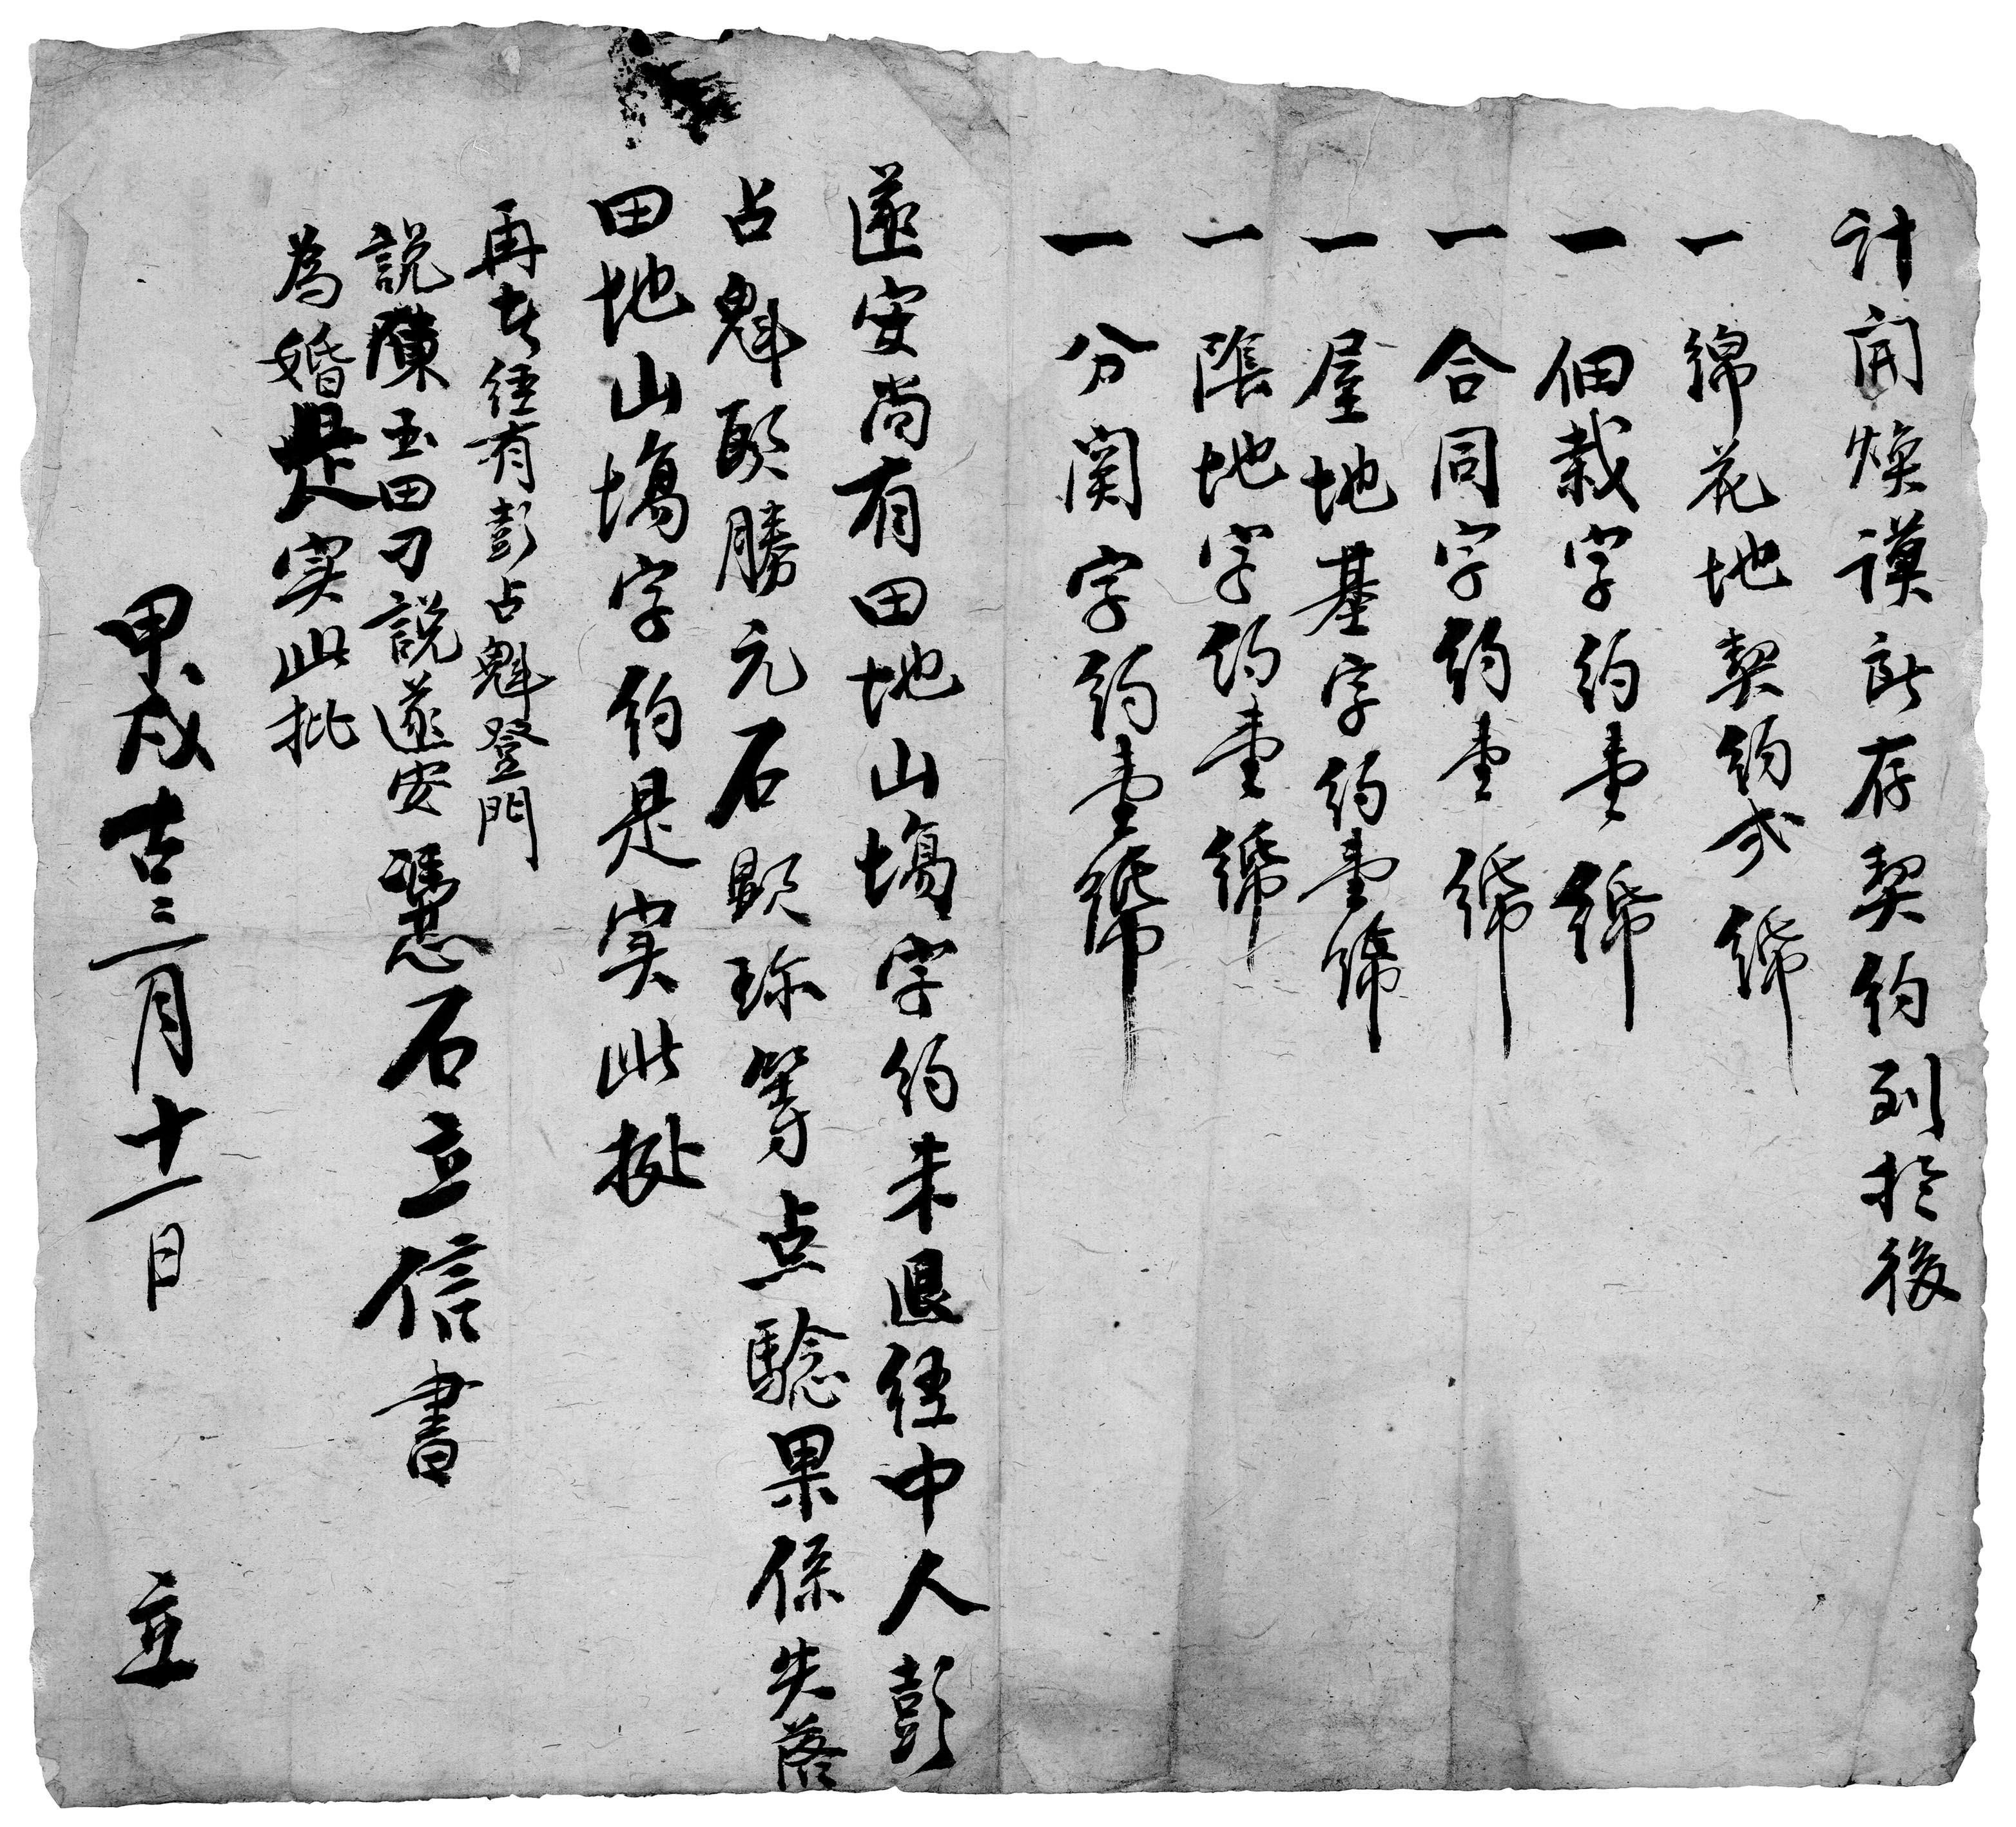 計開煥謨所存契約列於後
一 綿花地契約弍𢁉
一 佃栽字約壹𢁉
一 合同字約壹𢁉
一 屋地基字約壹𢁉
一 張地字約壹𢁉
一 分関字約壹𢁉
遂安尚有田地山塲字約未退経中人彭
占魁殴勝元石毆珎等点騐果係失落
田地山塲字約是実此批
再者経有彭占魁登門
說陳玉田刁說遂安 憑石立信書
為婚是实此批
甲戌古二三月十一日 立